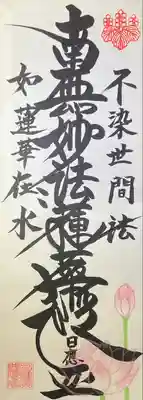 不染世間法
南無妙法蓮華経
日應
如蓮華在水